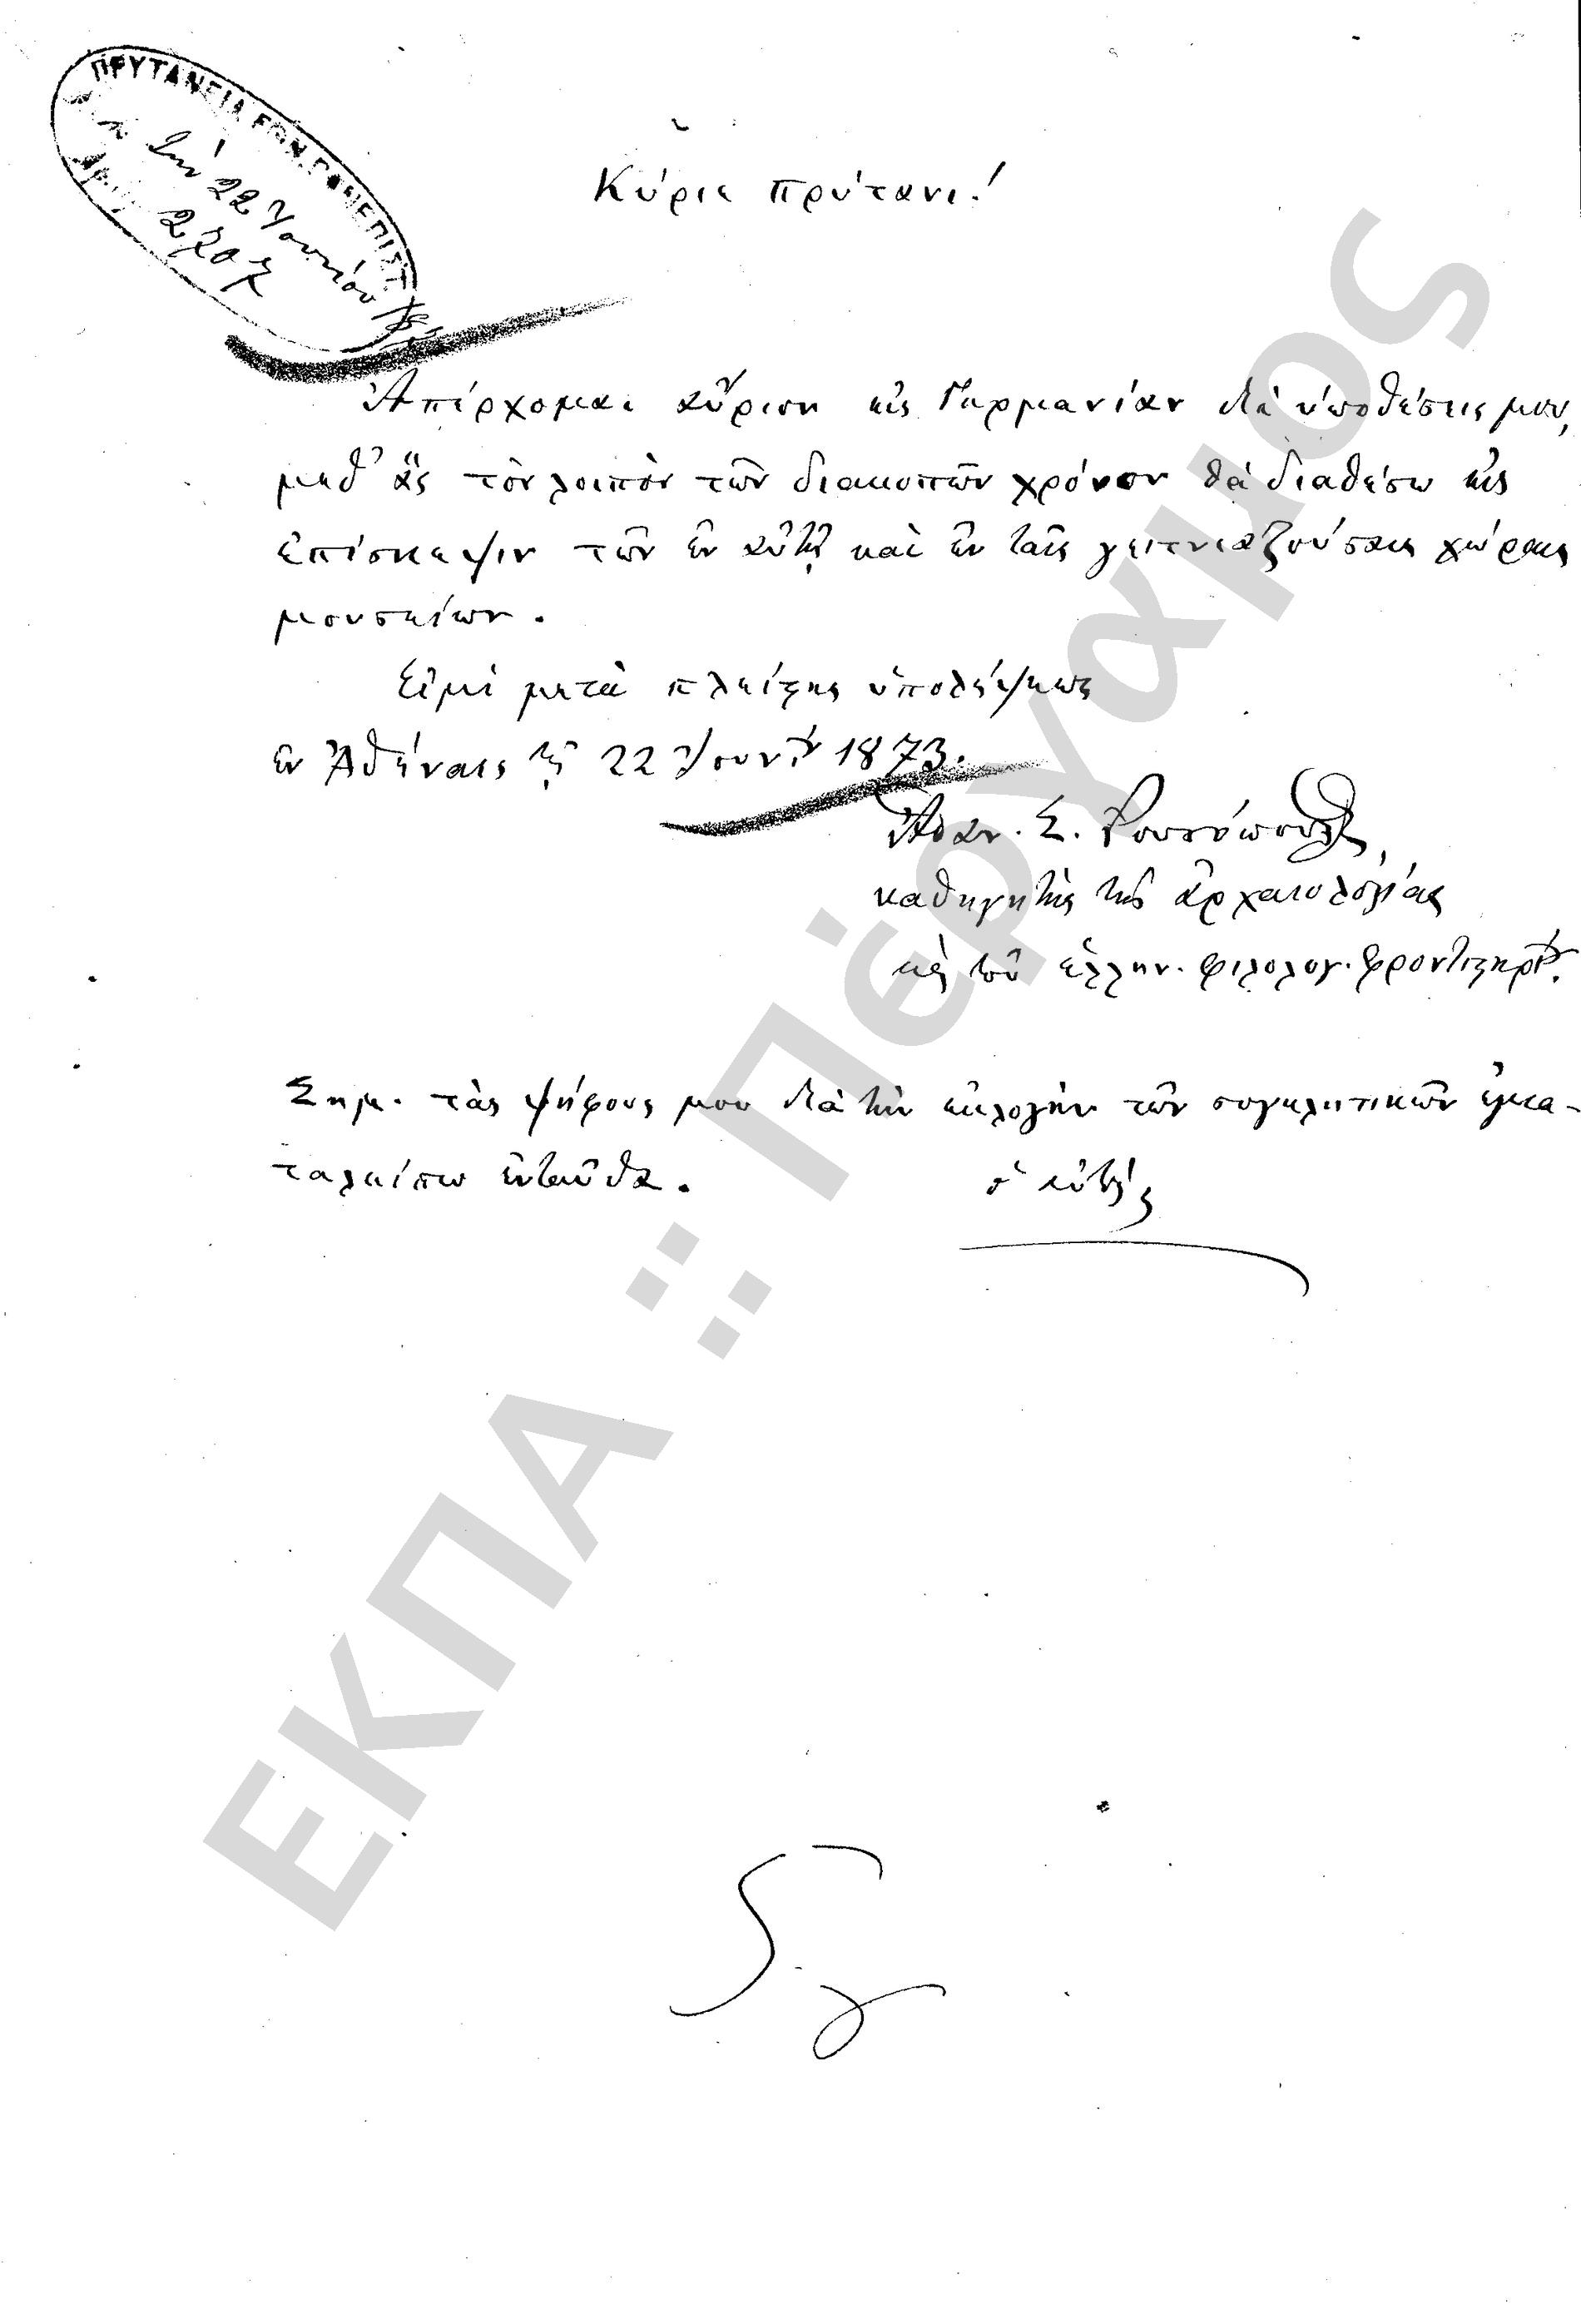 ΠΡΥΤΑΝΕΙΑ ΕΘΝ. ΠΑΝΕΠΙΣΤ.
τὴν 22 Ἰουνίου
Ἀριθ. 2207
Κύριε Πρύτανι!
Ἀπέρχομαι αὔριον εἰς Γερμανίαν δι' ὑποθέσεις μου,
μεθ' ἃς τὸν λοιπὸν τῶν διακοπῶν χρόνον θὰ διαθέσω εἰς
ἐπίσκεψιν τῶν ἐν αὐτῇ καὶ ἐν ταῖς γειτνιαζούσαις χώραις
μουσείων.
Εἰμὶ μετὰ πλείστης ὑπολήψεως
ἐν Ἀθήναις τῇ 22 Ἰουν. 1873.
Ἀθαν. Σ. Ῥουσόπουλος,
καθηγητὴς τῆς ἀρχαιολογίας
κὲ τοῦ ἑλλην. φιλολογ. φροντιστηρίου.
Σημ. τὰς ψήφους μου διὰ τὴν ἐκλογὴν τῶν συγκλητικῶν ἐγκα-
ταλείπω ἐνταῦθα. ὁ αὐτός
ΕΚΠΑ :: Πέργαμος